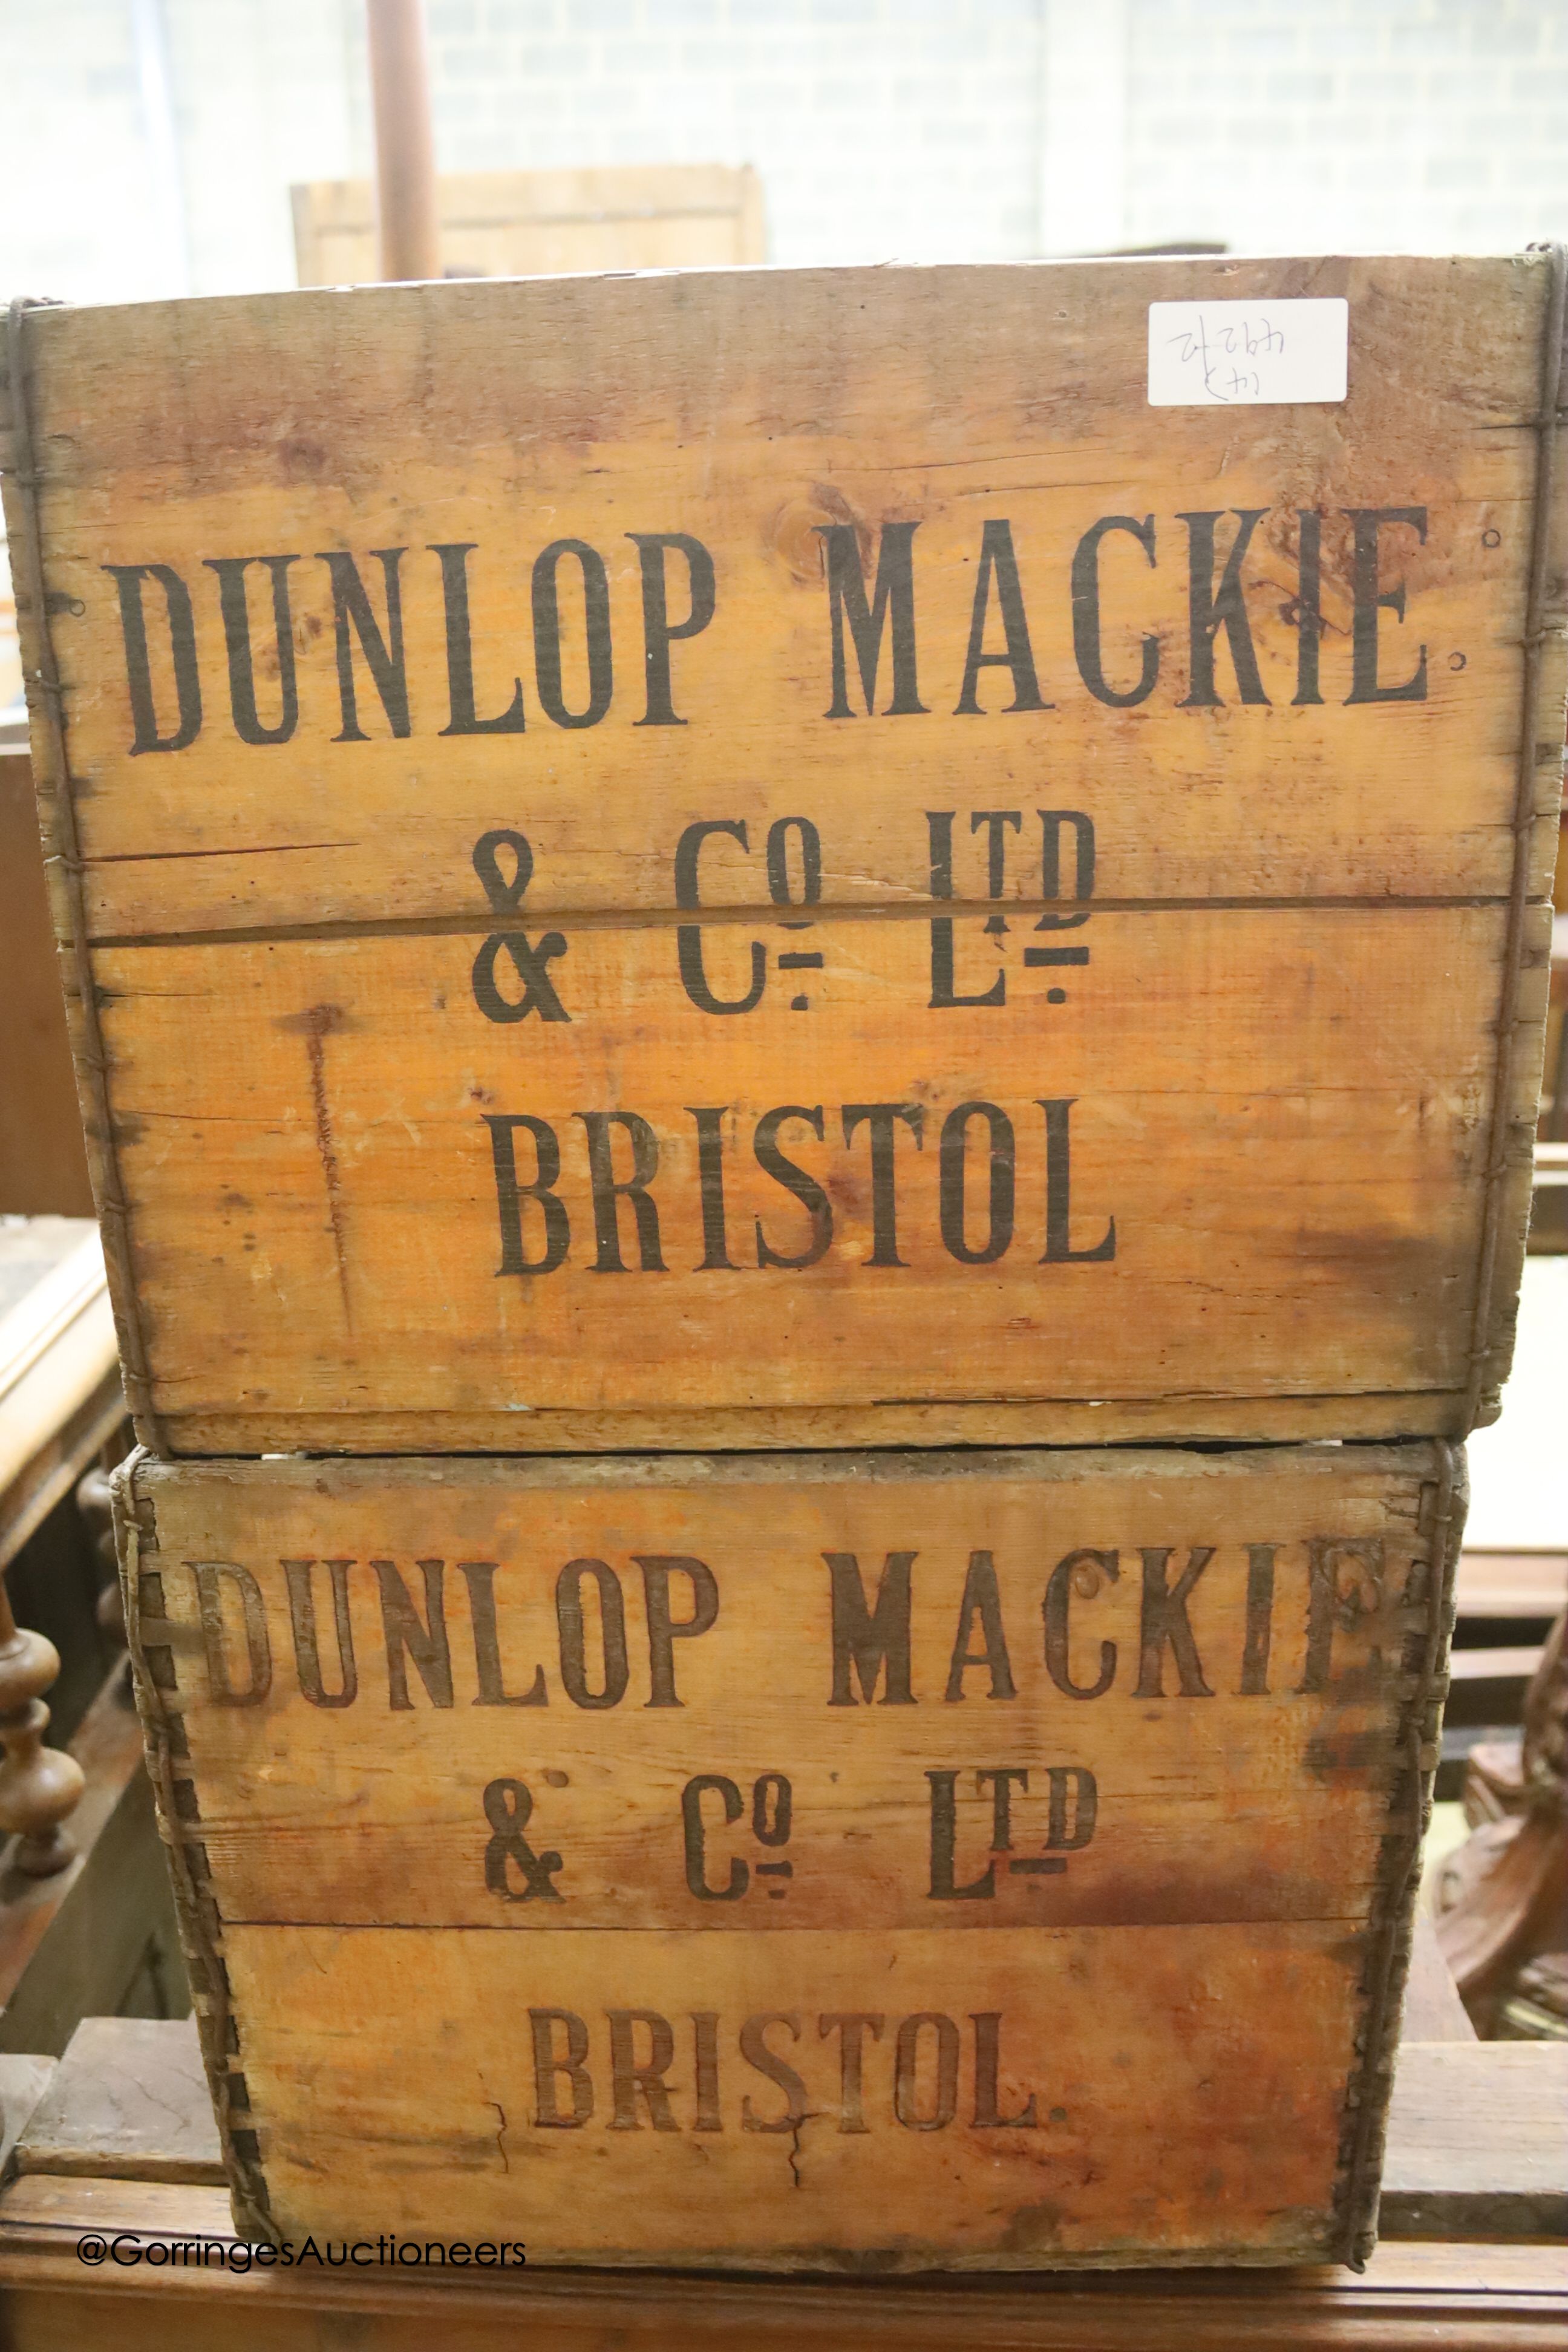 DUNLOP MACKIE.
& Co. LTD.
BRISTOL
DUNLOP MACKIE
& Co LTD
BRISTOL.
@GorringesAuctioneers